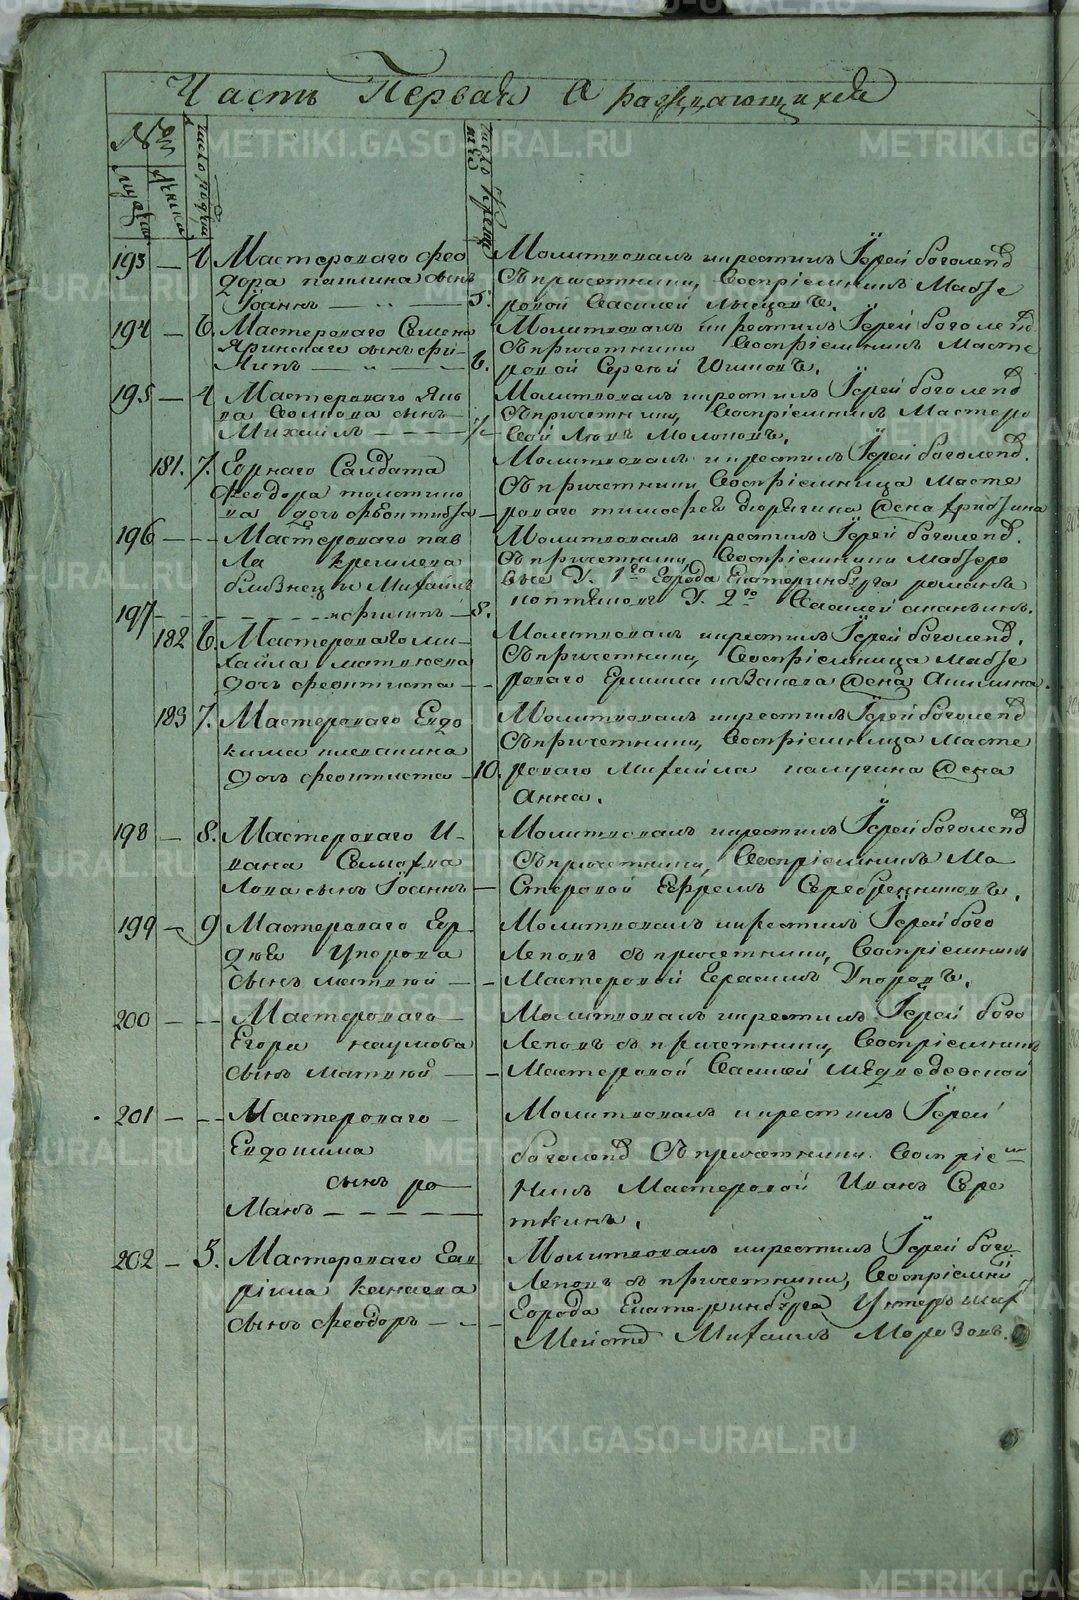 Часть Первая О раждающихся
№
мужска
женска
число рожден
число крещ
193 — 6 Мастероваго Фео 
дора сынъ
Іоаннъ — 5.
Молитвовалъ и крестилъ Іерей Боголепъ
съ причетники, Воспріемникъ Масте
ровой Василей
194 — 6. Мастероваго Семена
Яринскаго сынъ Фи-
липъ — 6.
Молитвовалъ и крестилъ Іерей Боголепъ
съ причетники Воспріемникъ Масте
ровой Сергей
195 — 4 Мастероваго Яко
ва сынъ
Михайлъ — 7
Молитвовалъ и крестилъ Іерей Боголепъ
съ причетники, Воспріемникъ Мастеро
вой
181. 7. Горнаго Салдата
Феодора
ва дочь Феоктиста —
Молитвовалъ и крестилъ Іерей Боголепъ.
съ причетники Воспріемница Масте
роваго Тимофея жена
196 — Мастероваго Пав
ла
близнецы Михайлъ
Молитвовалъ и крестилъ Іерей Боголепъ.
съ причетники, Воспріемники Мастеро
вые У. 1го Города Екатеринбурга Романъ
197 — и Филипъ — 8.
У. 2го Василей Ананьинъ.
182 6. Мастероваго Ми-
хайла Матвеева
дочь Феоктиста —
Молитвовалъ и крестилъ Іерей Боголепъ.
съ причетники, Воспріемница Масте
роваго жена Акилина.
183 7. Мастероваго Евдо
кима
дочь Феоктиста — 10.
Молитвовалъ и крестилъ Іерей Боголепъ
съ причетники, Воспріемница Масте
роваго Михайла жена
Анна.
198 — 8. Мастероваго И-
вана
лова сынъ Іоаннъ —
Молитвовалъ и крестилъ Іерей Боголепъ
съ причетники, Воспріемникъ Ма
стеровой Ефремъ Серебренниковъ.
199 — 9 Мастероваго Гор
дея Упорова
сынъ Матвей —
Молитвовалъ и крестилъ Іерей Бого
лепъ съ причетники, Воспріемникъ
Мастеровой Герасимъ Упоровъ.
200 — Мастероваго
Егора Наумова
сынъ Матвей —
Молитвовалъ и крестилъ Іерей Бого
лепъ съ причетники, Воспріемникъ
Мастеровой Василей Медведевской
201 — Мастероваго —
Евдокима
сынъ Ро
манъ —
Молитвовалъ и крестилъ Іерей
Боголепъ съ причетники. Воспріем
никъ Мастеровой Иванъ Сре
ткинъ.
202 — 5. Мастероваго Гав
ріила Канаева
сынъ Феодоръ —
Молитвовалъ и крестилъ Іерей Бого
лепъ съ причетники, Воспріемни
Города Екатеринбурга Унтеръ Шах
мейстеръ Михаилъ Морозовъ.
METRIKI.GASO-URAL.RU